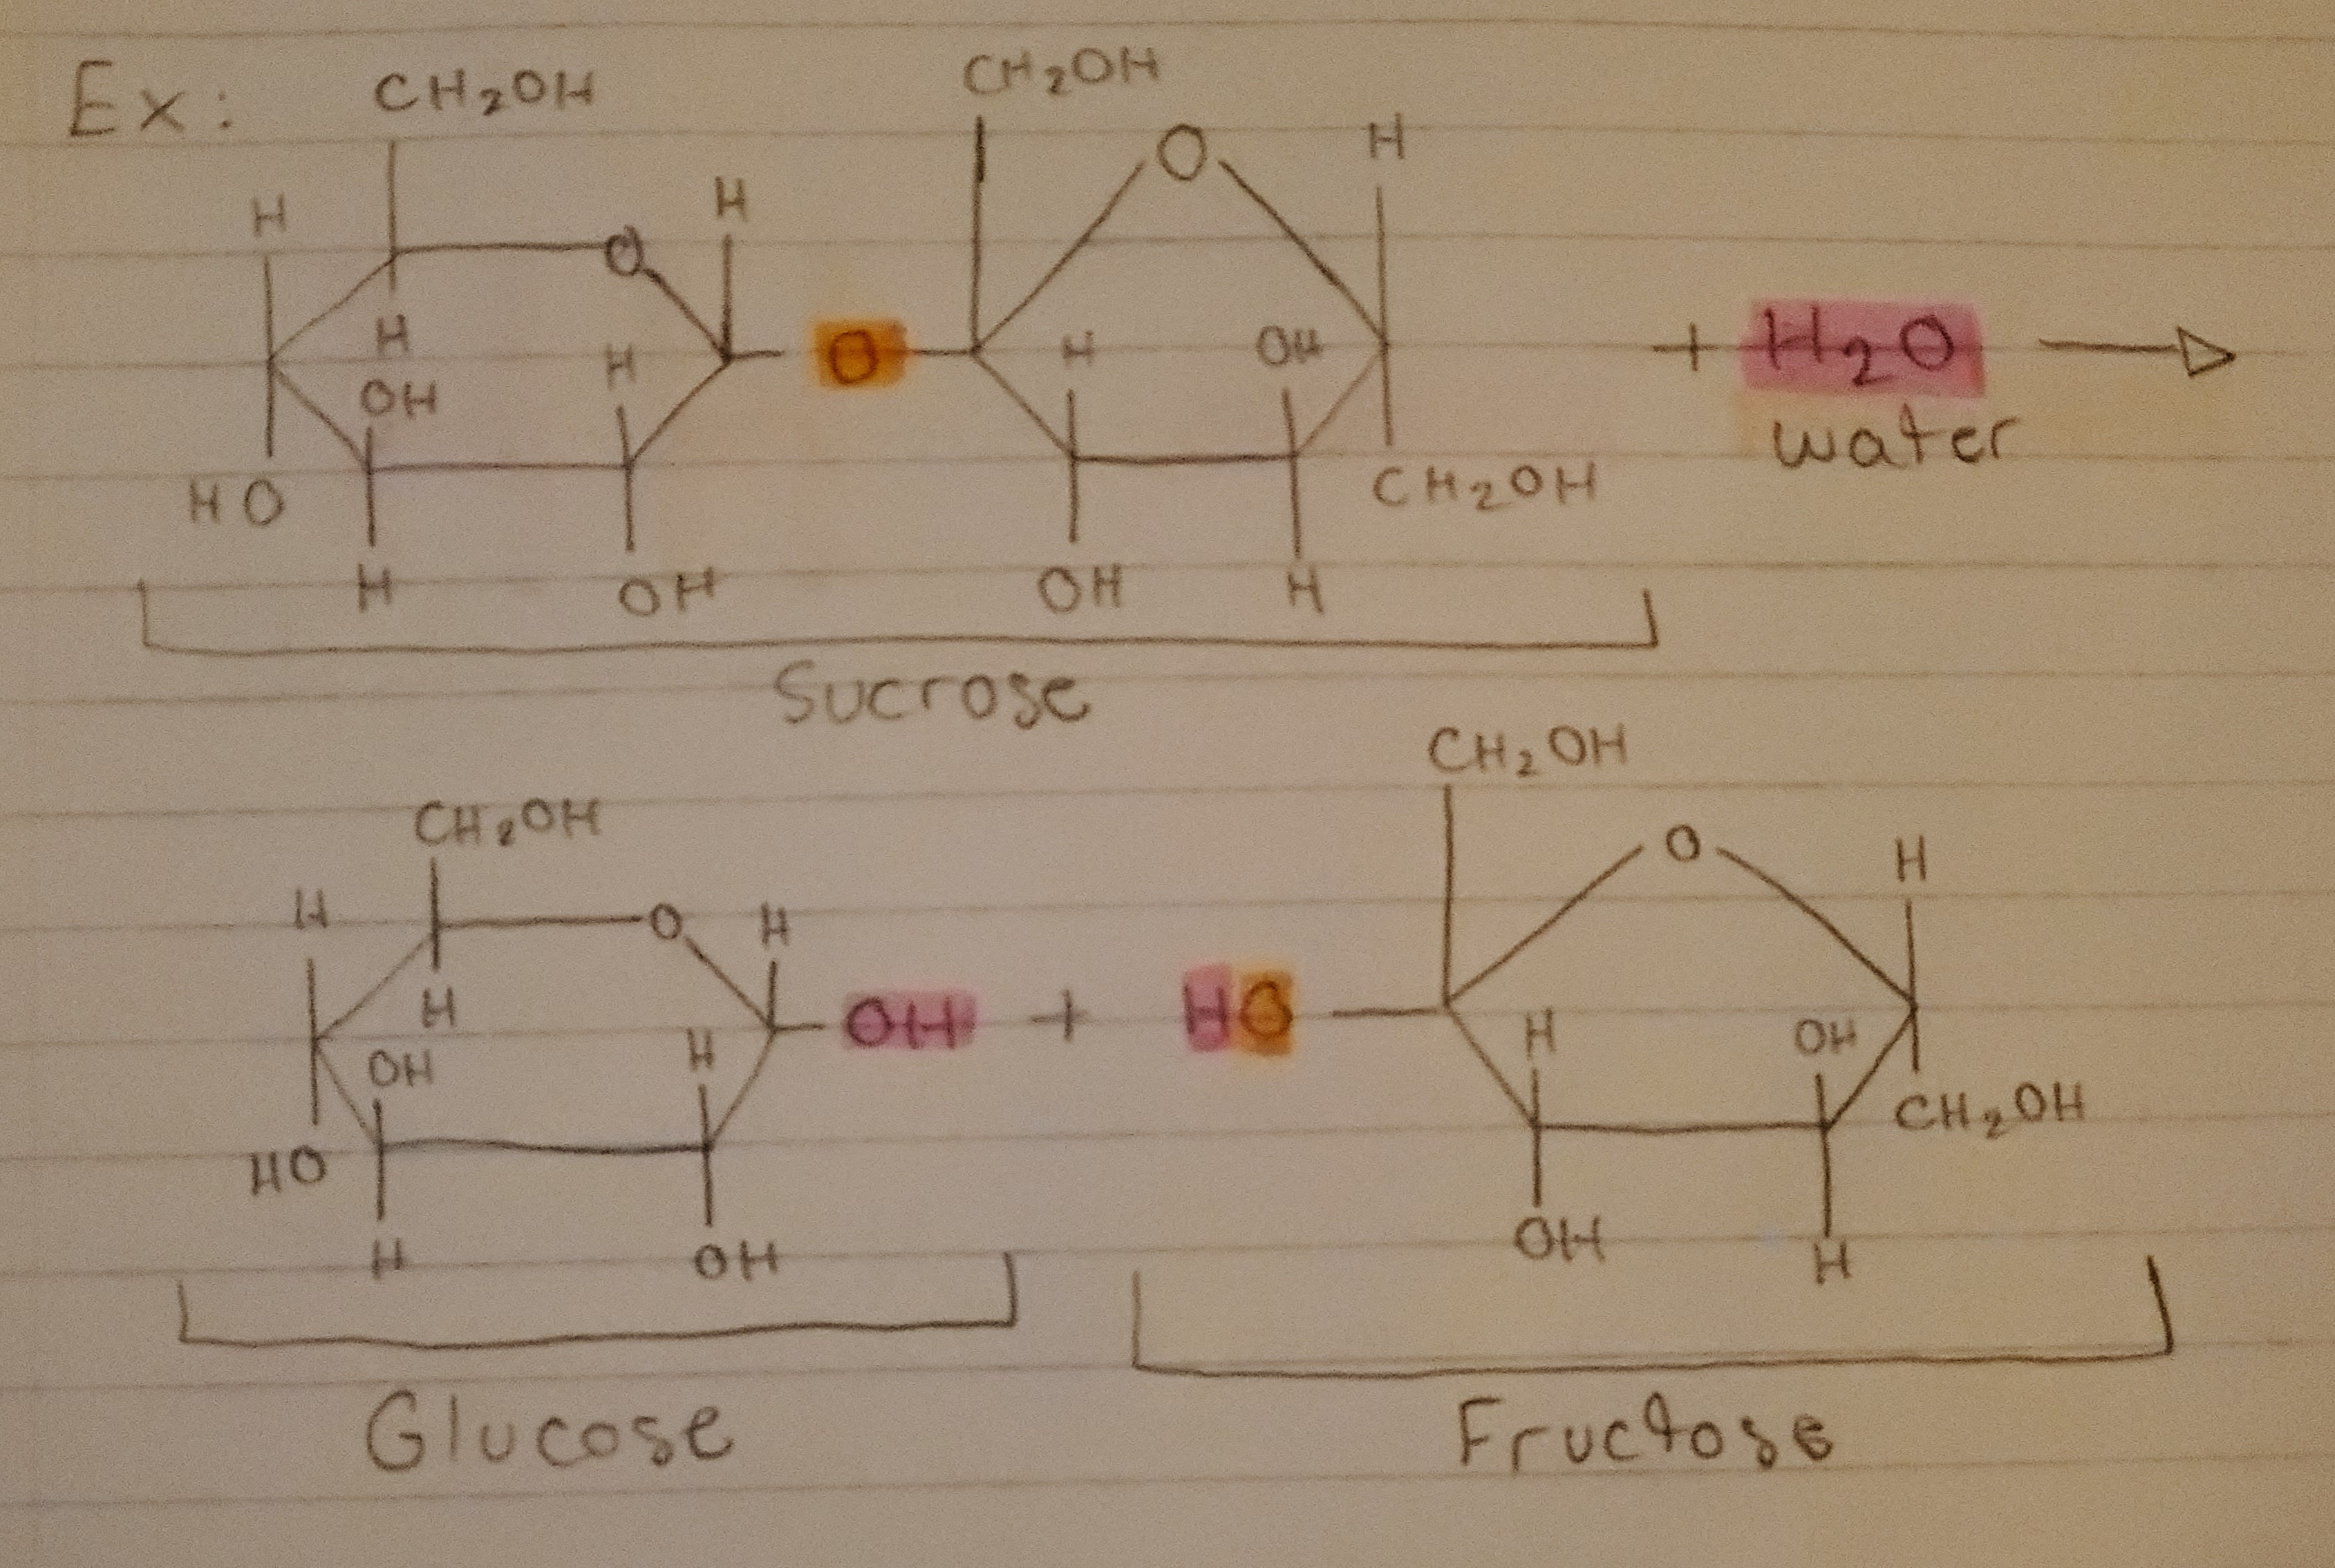 Ex: CH₂OH CH₂OH
O H
H H
O
H OH H O H OH + H₂O
OH water
HO CH₂OH
H OH OH H
Sucrose
CH₂OH
CH₂OH
O H
H O H
H OH + HO H OH
OH H
CH₂OH
HO
OH
H OH H
Glucose Fructose